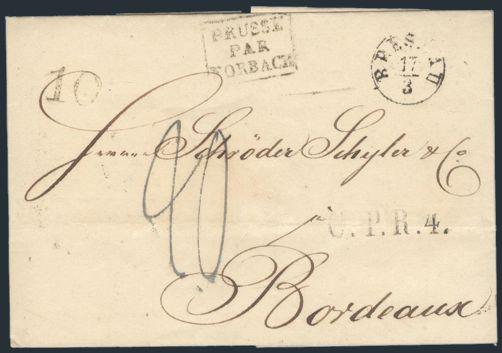 PRUSSE
PAR
FORBACH
BRESLAU
17
3
10
Herren Schröder Schyler & Co
20
à
C.P.R.4.
Bordeaux